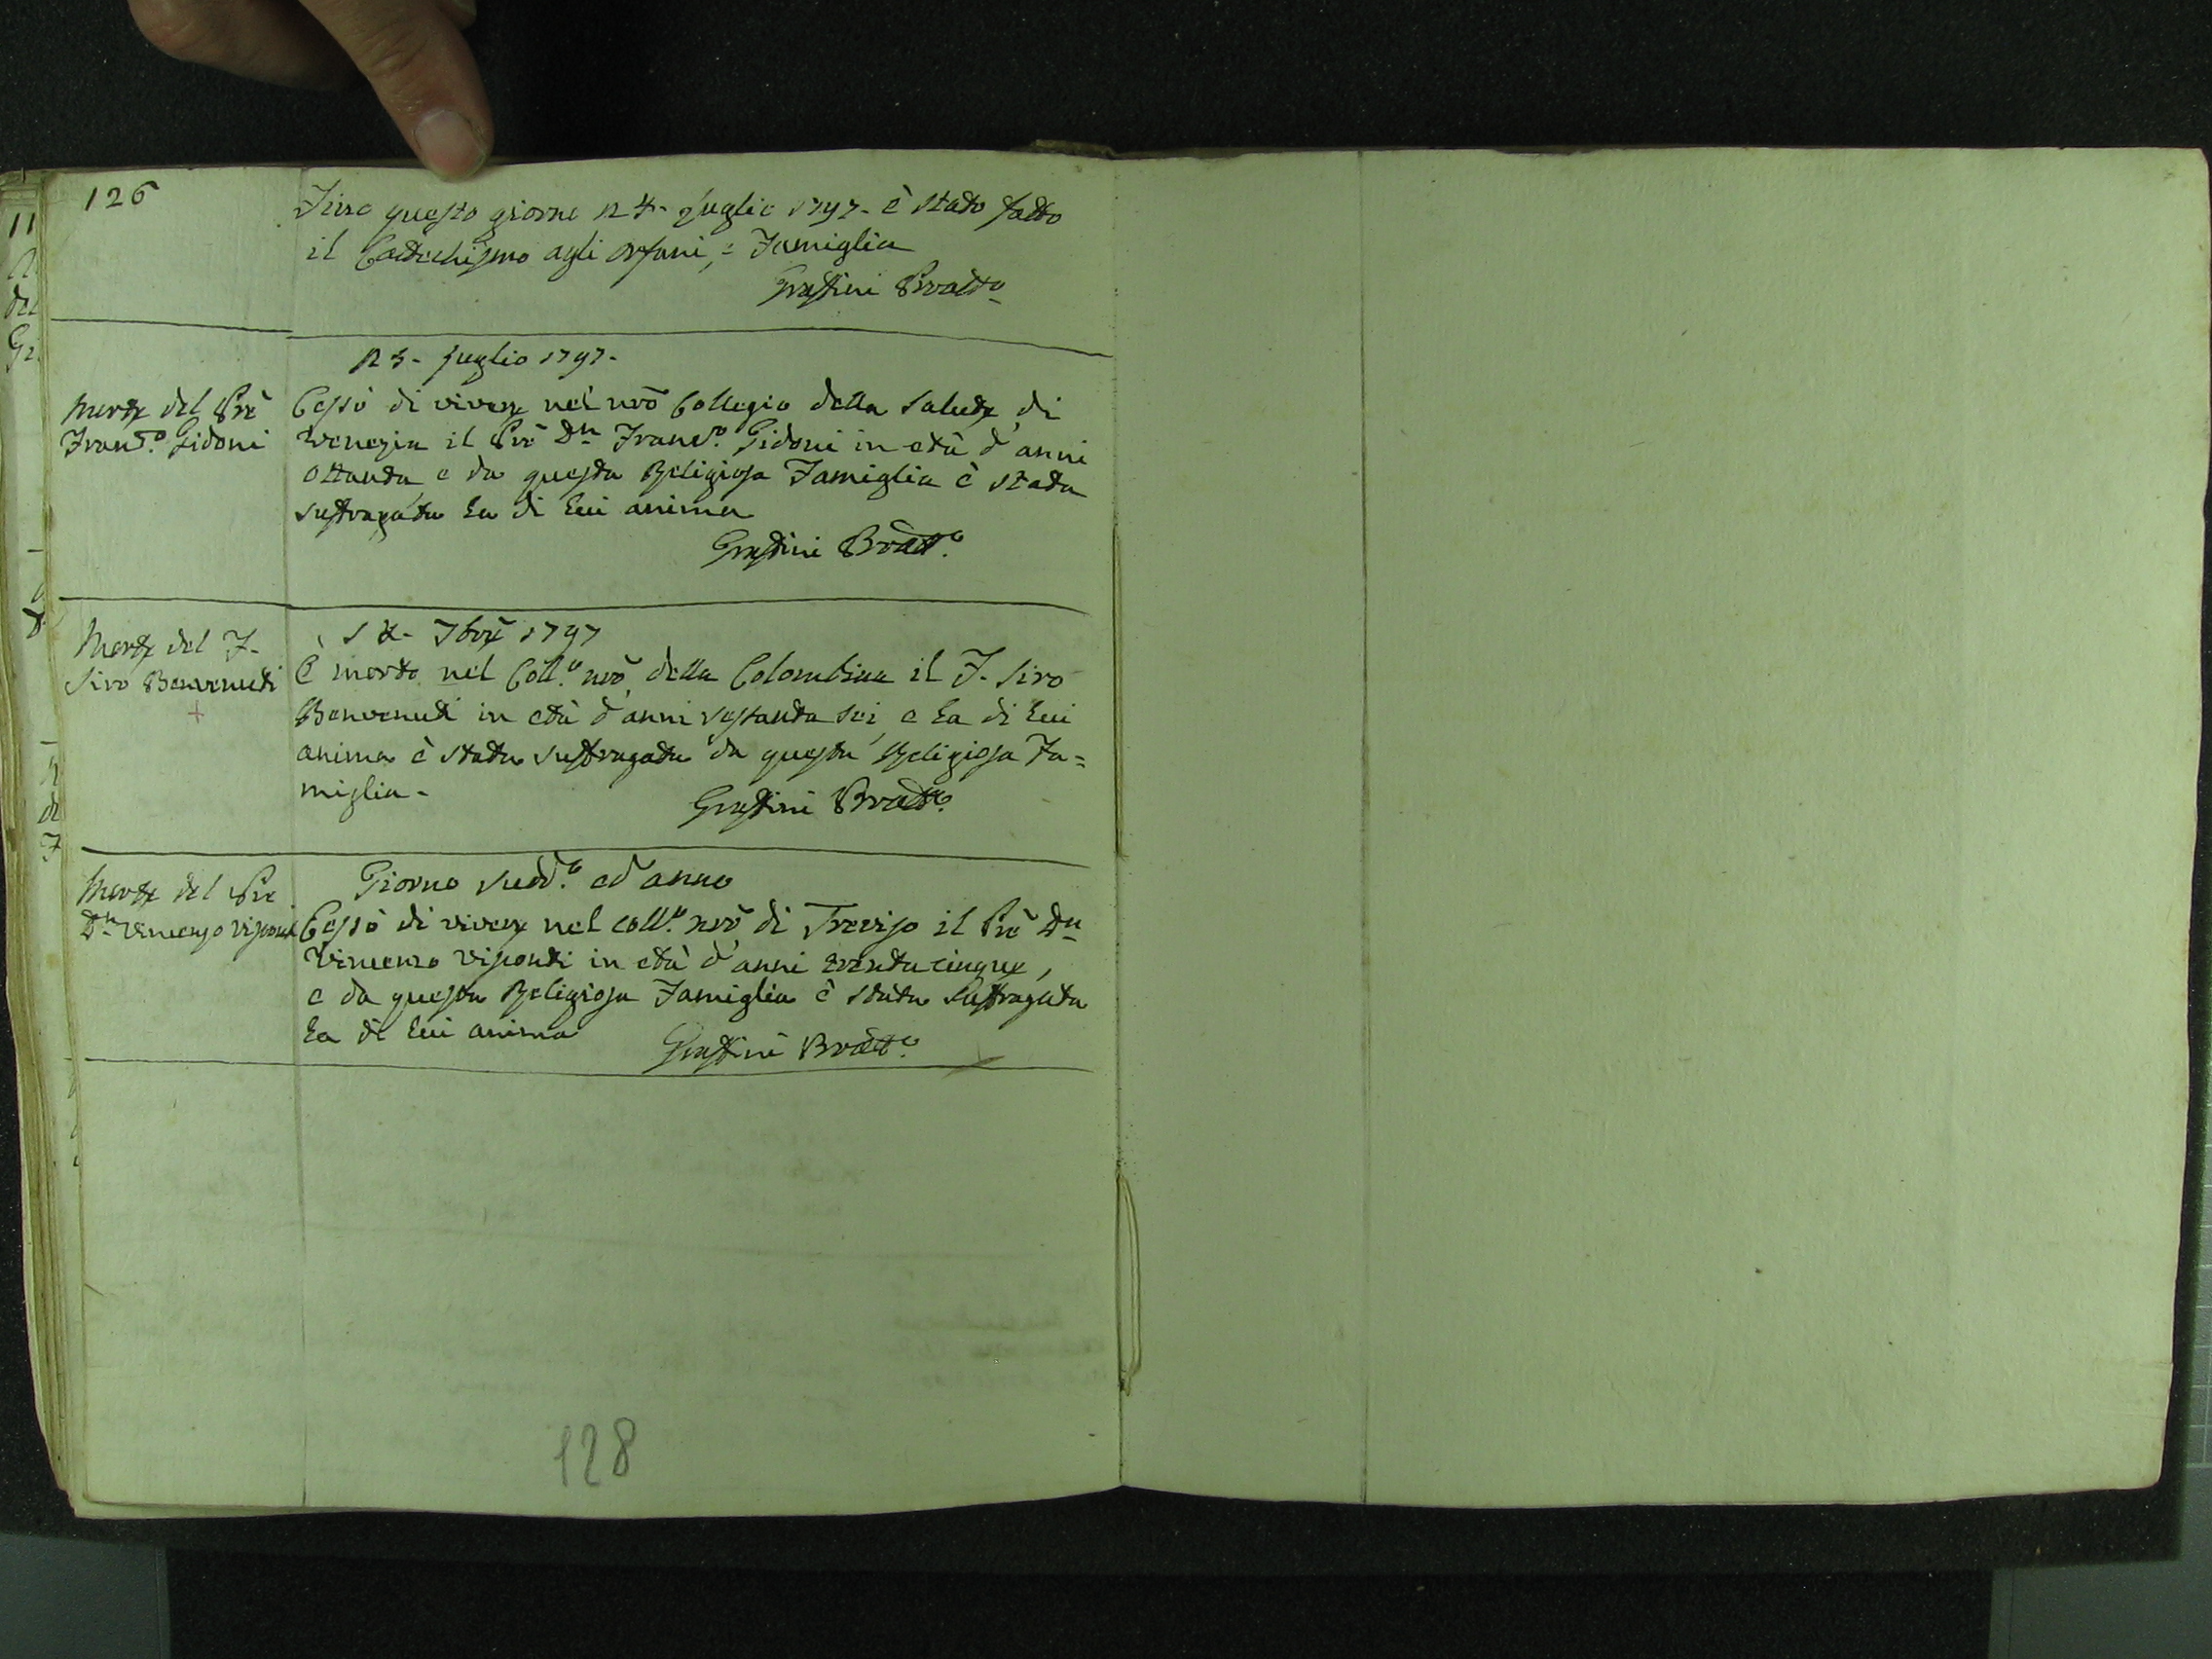 126
Fino questo giorno 24. Luglio 1797. è stato fatto
il Catechismo agli Orfani, e Famiglia
Grassini Prvatto
25. Luglio 1797.
Morte del Prē
Franc.º Gidoni
Cessò di vivere nel nrō Collegio della Salute di
Venezia il Prē Dn Franc.º Gidoni in età d'anni
ottanta, e da questa Religiosa Famiglia è stata
suffragata la di lui anima
Morte del F.
Siro Benvenuti
7brē 1797
È morto nel Coll.º nrō della Colombina il F. Siro
Benvenuti in età d'anni sessanta sei, e la di lui
anima è stata suffragata da questa Religiosa Fa=
miglia.
Giorno sudd.º ed anno
Morte del Pre
Dn Vincenzo Visponti
Cessò di vivere nel coll.º nrō di Treviso il Prē Dn
Vincenzo Visponti in età d'anni trenta cinque,
e da questa Religiosa Famiglia è stata suffragata
la di lui anima
128